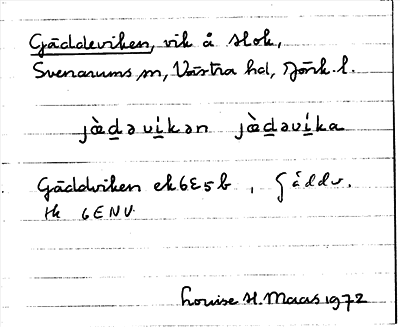 Gäddeviken, vik å Hok,
Svenarums sn, Västra hd, Jönk. l.
jæ̀dəvikən jæ̀dəvika
Gäddviken ek 6E5b, Gäddv.
tk 6E NV.
Louise H. Maas 1972